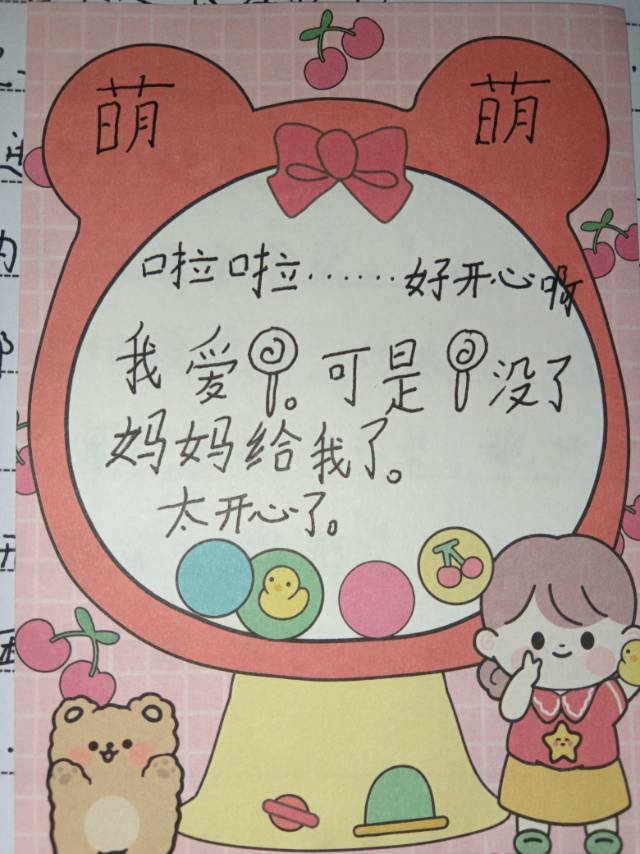 萌 萌
啦啦……好开心啊
我爱。可是没了
妈妈给我了。
太开心了。